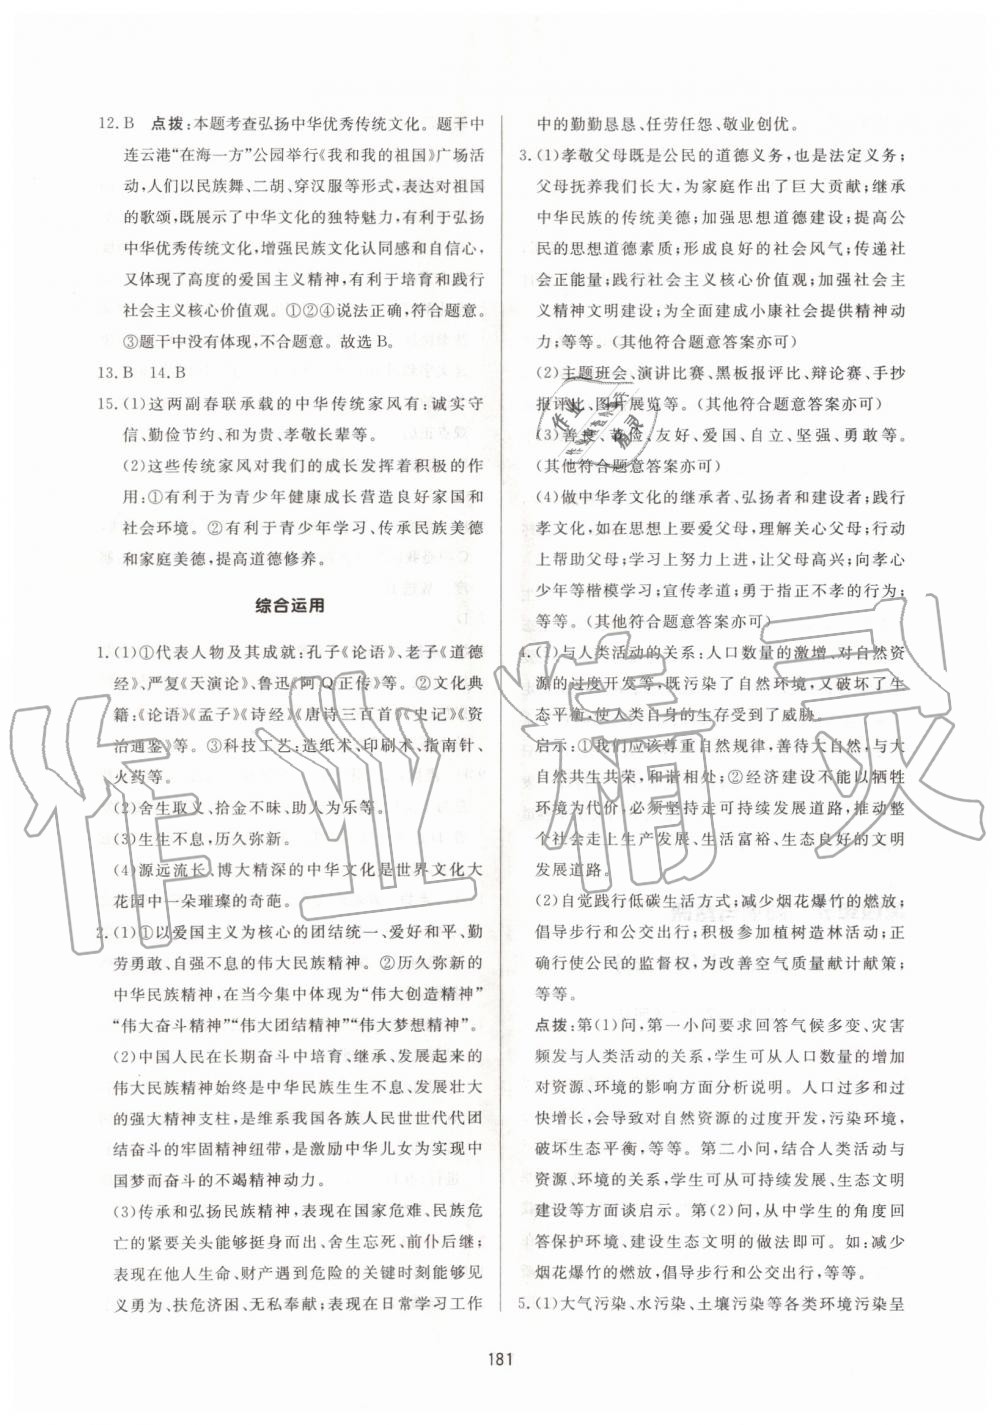 12. B　点拨:本题考查弘扬中华优秀传统文化。题干中
连云港“在海一方”公园举行《我和我的祖国》广场活
动,人们以民族舞、二胡、穿汉服等形式,表达对祖国
的歌颂,既展示了中华文化的独特魅力,有利于弘扬
中华优秀传统文化,增强民族文化认同感和自信心,
又体现了高度的爱国主义精神,有利于培育和践行
社会主义核心价值观。①②④说法正确,符合题意。
③题干中没有体现,不合题意。故选B。
13. B　14. B
15. (1)这两副春联承载的中华传统家风有:诚实守
信、勤俭节约、和为贵、孝敬长辈等。
(2)这些传统家风对我们的成长发挥着积极的作
用:①有利于为青少年健康成长营造良好家国和
社会环境。②有利于青少年学习、传承民族美德
和家庭美德,提高道德修养。
综合运用
1. (1)①代表人物及其成就:孔子《论语》、老子《道德
经》、严复《天演论》、鲁迅《阿Q正传》等。②文化典
籍:《论语》《孟子》《诗经》《唐诗三百首》《史记》《资
治通鉴》等。③科技工艺:造纸术、印刷术、指南针、
火药等。
(2)舍生取义、拾金不昧、助人为乐等。
(3)生生不息、历久弥新。
(4)源远流长、博大精深的中华文化是世界文化大
花园中一朵璀璨的奇葩。
2. (1)①以爱国主义为核心的团结统一、爱好和平、勤
劳勇敢、自强不息的伟大民族精神。②历久弥新的
中华民族精神,在当今集中体现为“伟大创造精神”
“伟大奋斗精神”“伟大团结精神”“伟大梦想精神”。
(2)中国人民在长期奋斗中培育、继承、发展起来的
伟大民族精神始终是中华民族生生不息、发展壮大
的强大精神支柱,是维系我国各族人民世世代代团
结奋斗的牢固精神纽带,是激励中华儿女为实现中
国梦而奋斗的不竭精神动力。
(3)传承和弘扬民族精神,表现在国家危难、民族危
亡的紧要关头能够挺身而出、舍生忘死、前仆后继;
表现在他人生命、财产遇到危险的关键时刻能够见
义勇为、扶危济困、无私奉献;表现在日常学习工作
中的勤勤恳恳、任劳任怨、敬业创优。
3. (1)孝敬父母既是公民的道德义务,也是法定义务;
父母抚养我们长大,为家庭作出了巨大贡献;继承
中华民族的传统美德;加强思想道德建设;提高公
民的思想道德素质;形成良好的社会风气;传递社
会正能量;践行社会主义核心价值观;加强社会主
义精神文明建设;为全面建成小康社会提供精神动
力;等等。(其他符合题意答案亦可)
(2)主题班会、演讲比赛、黑板报评比、辩论赛、手抄
报评比、图片展览等。(其他符合题意答案亦可)
(3)善良、节俭、友好、爱国、自立、坚强、勇敢等。
(其他符合题意答案亦可)
(4)做中华孝文化的继承者、弘扬者和建设者;践行
孝文化,如在思想上要爱父母,理解关心父母;行动
上帮助父母;学习上努力上进,让父母高兴;向孝心
少年等楷模学习;宣传孝道;勇于指正不孝的行为;
等等。(其他符合题意答案亦可)
4. (1)与人类活动的关系:人口数量的激增、对自然资
源的过度开发等,既污染了自然环境,又破坏了生
态平衡,使人类自身的生存受到了威胁。
启示:①我们应该尊重自然规律,善待大自然,与大
自然共生共荣,和谐相处;②经济建设不能以牺牲
环境为代价,必须坚持走可持续发展道路,推动整
个社会走上生产发展、生活富裕、生态良好的文明
发展道路。
(2)自觉践行低碳生活方式;减少烟花爆竹的燃放;
倡导步行和公交出行;积极参加植树造林活动;正
确行使公民的监督权,为改善空气质量献计献策;
等等。
点拨:第(1)问,第一小问要求回答气候多变、灾害
频发与人类活动的关系,学生可从人口数量的增加
对资源、环境的影响方面分析说明。人口过多和过
快增长,会导致对自然资源的过度开发,污染环境,
破坏生态平衡,等等。第二小问,结合人类活动与
资源、环境的关系,学生可从可持续发展、生态文明
建设等方面谈启示。第(2)问,从中学生的角度回
答保护环境、建设生态文明的做法即可。如:减少
烟花爆竹的燃放,倡导步行和公交出行,等等。
5. (1)大气污染、水污染、土壤污染等各类环境污染呈
181
作业精灵